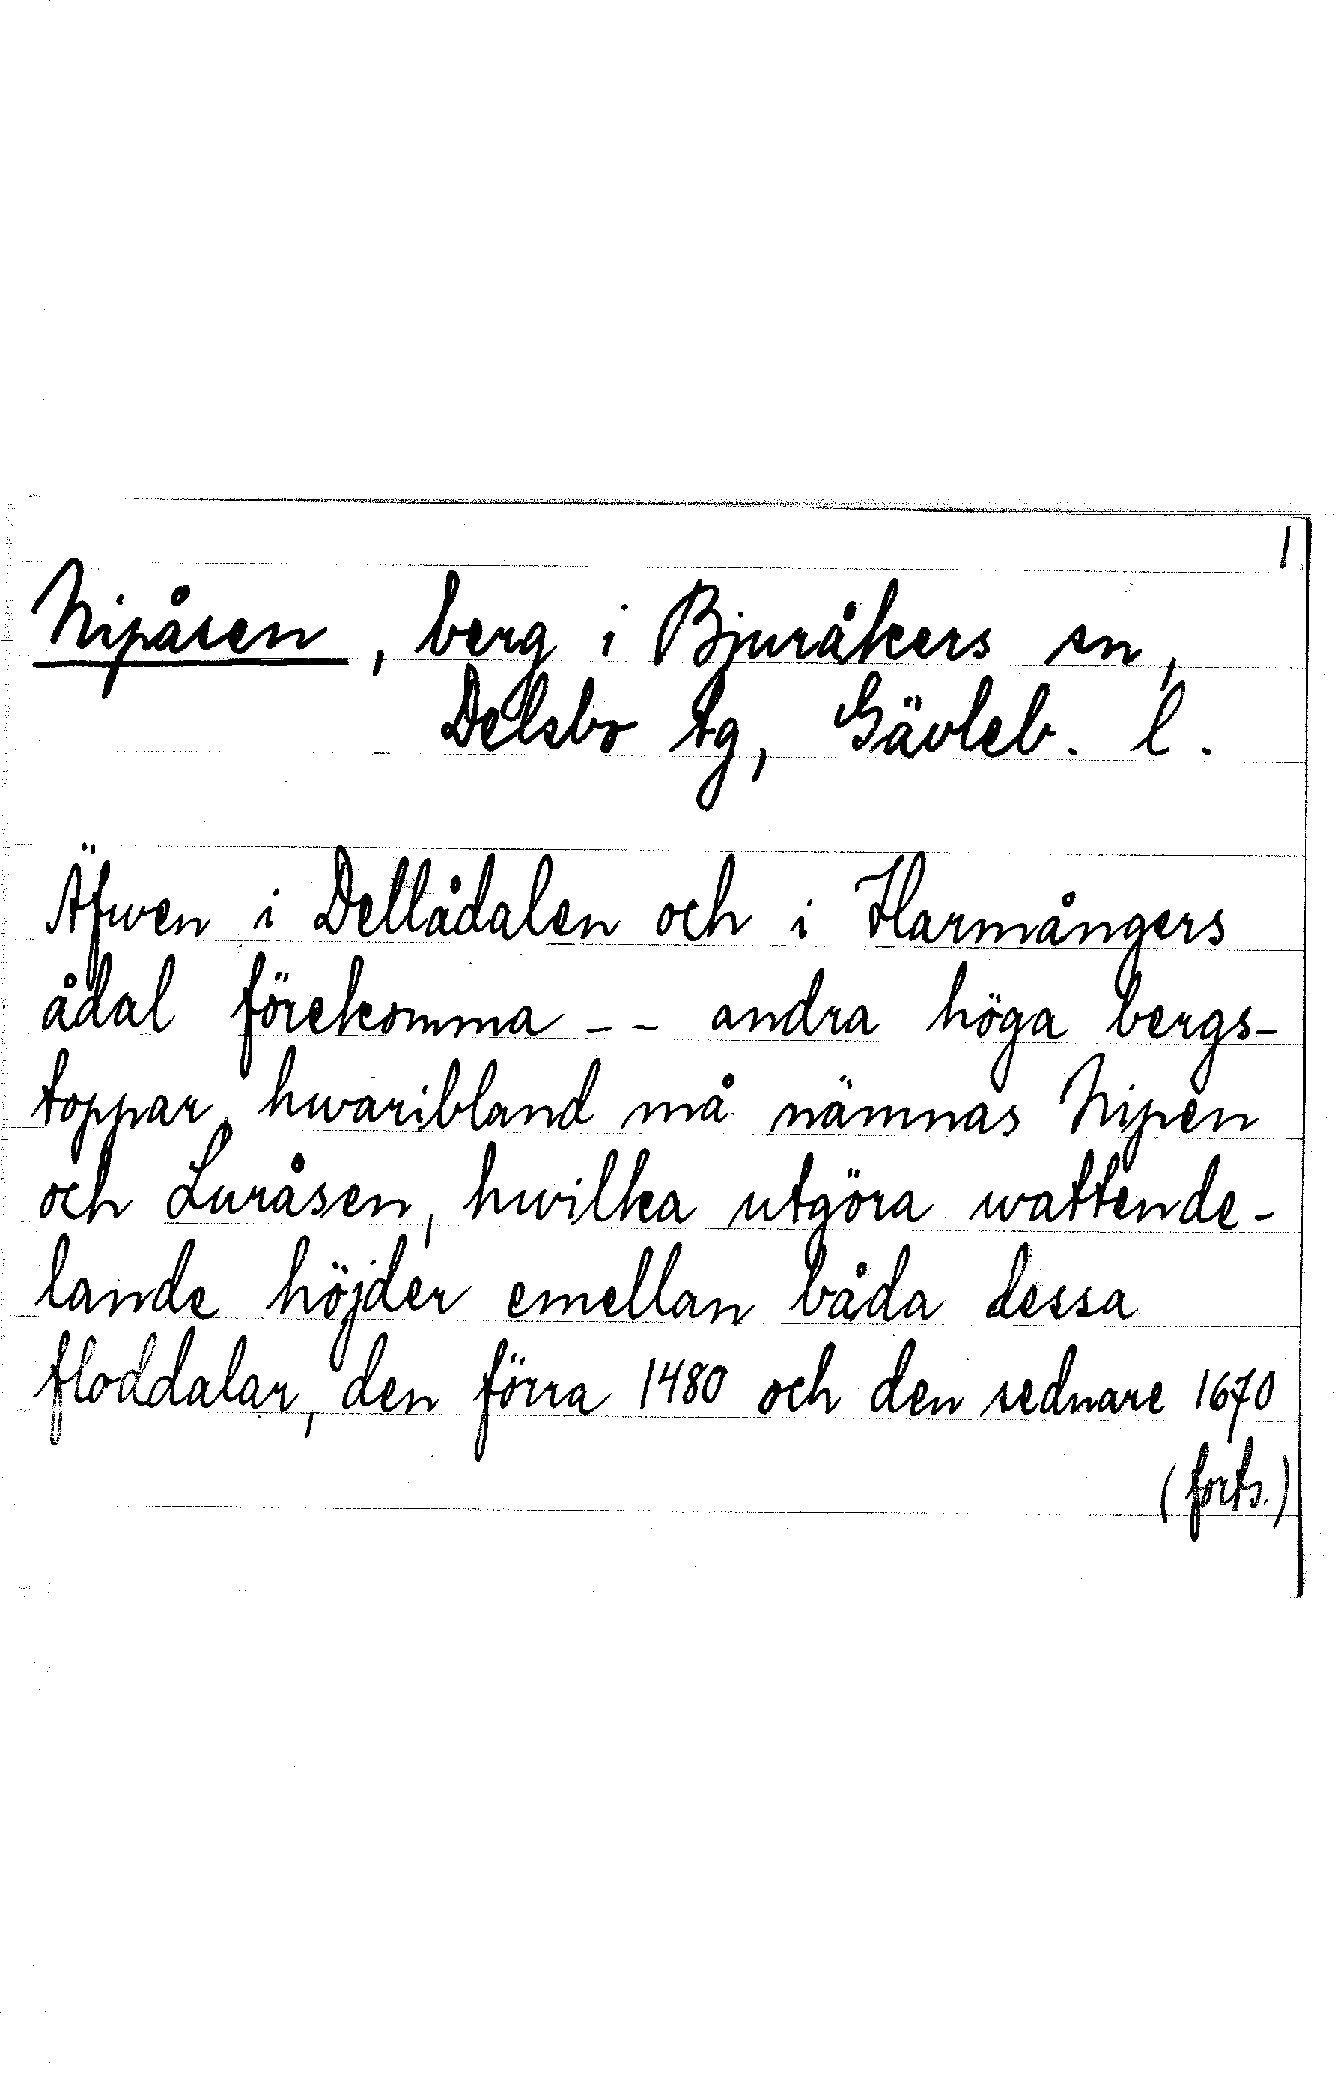 1
Nipåsen, berg i Bjuråkers sn,
Delsbo tg, Gävleb. l.
Äfwen i Dellådalen och i Harmångers
ådal förekomma -- andra höga bergs-
toppar, hwaribland må nämnas Nipen
och Luråsen, hwilka utgöra wattende-
lande höjder emellan båda dessa
floddalar, den förra 1480 och den sednare 1670
(forts.)